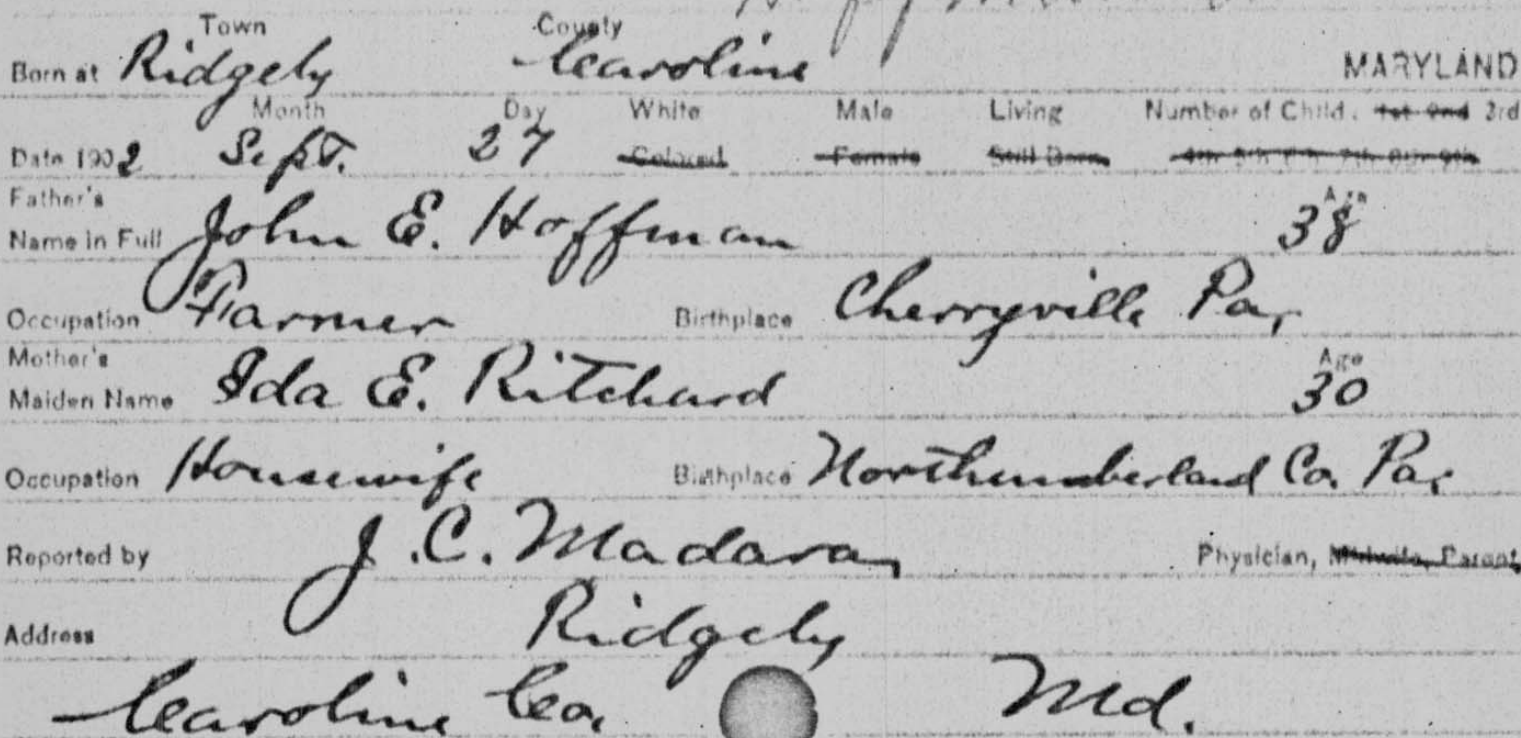 Town County
Born at Ridgely Caroline MARYLAND
Month Day White Male Living Number of Child. 1st 2nd 3rd
Date 1902 Sept. 27 Colored Female Still Born 4th 5th 6th 7th 8th 9th
Father's Age
Name in Full John E. Hoffman 38
Occupation Farmer Birthplace Cherryville Pa.
Mother's Age
Maiden Name Ida E. Ritchard 30
Occupation Housewife Birthplace Northumberland Co. Pa.
Reported by J. C. Madara, Physician, Midwife, Parent,
Address Ridgely
Caroline Co. Md.